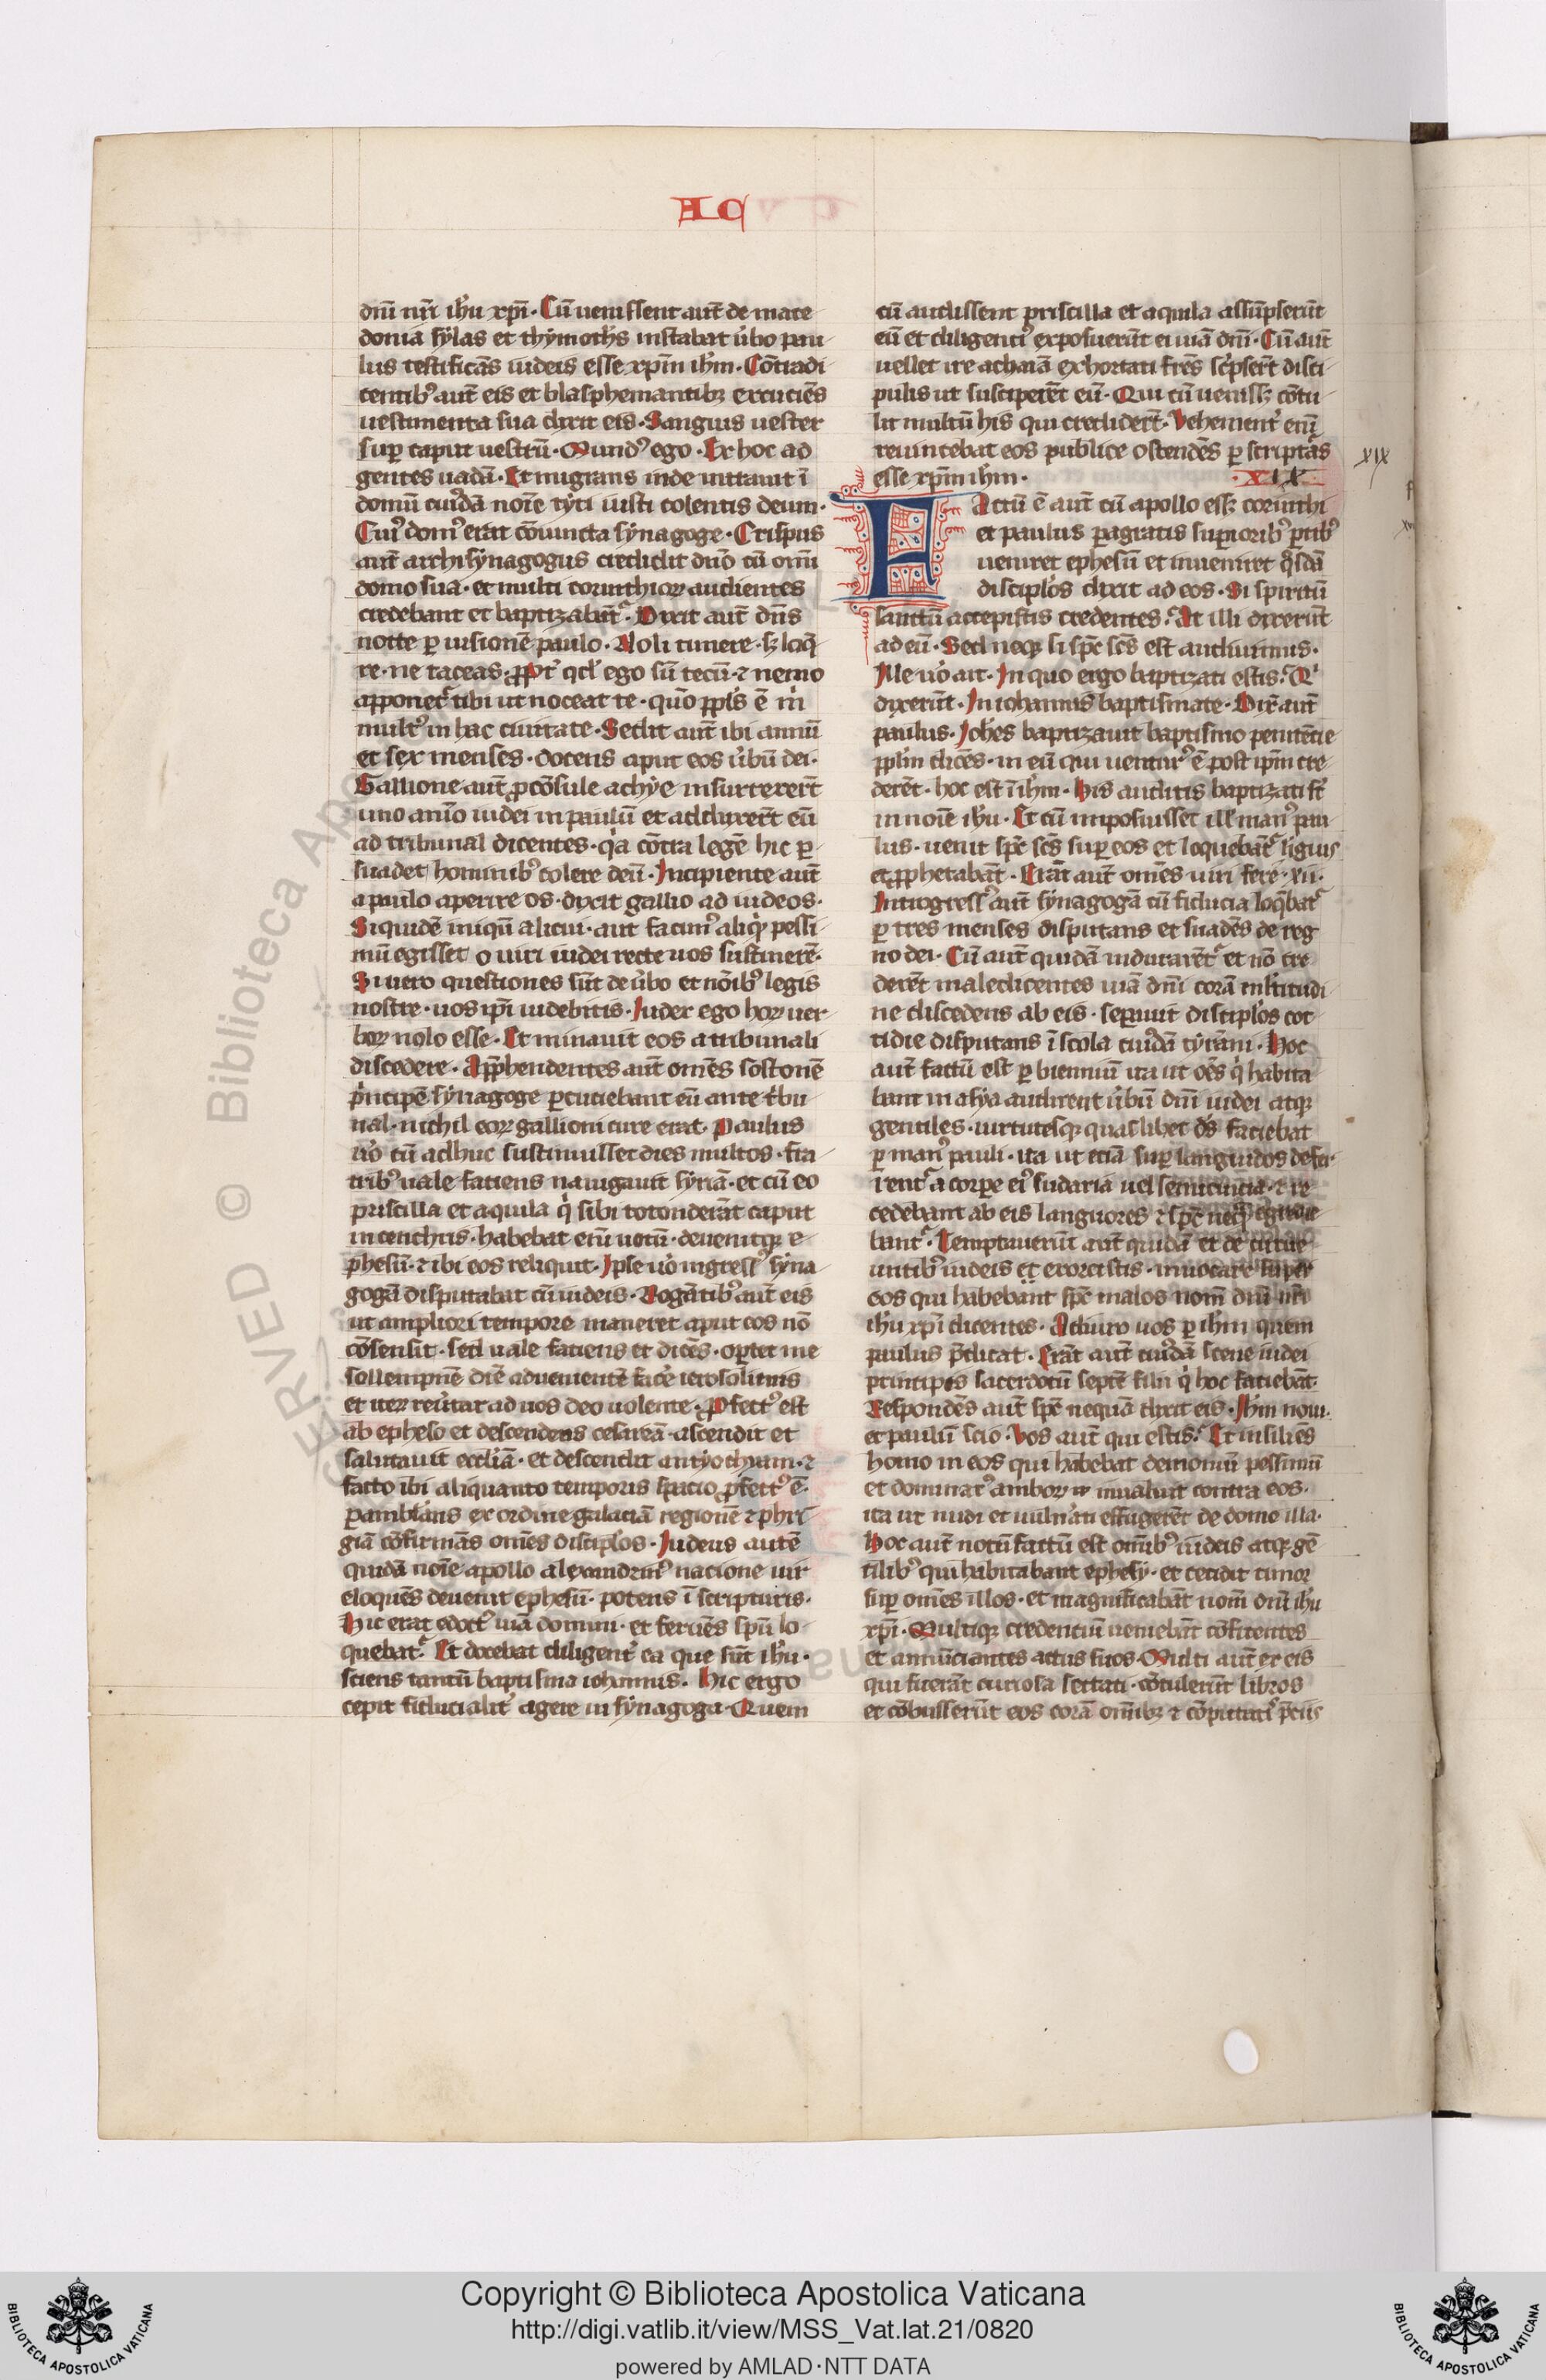 AC
dnī nr̄i ih̓u xp̄i · Cū uenissent aut̄ de mace
donia sylas et thymoth̓s instabat u̓bo pau
lus testificās iudeis esse xp̄m ih̓m · Cōtradi
centib᾽ aut̄ eis et blasphemantibꝫ excuciēs
uestimenta sua dixit eis · Sanguis uester
suꝑ caput uestrū · Mund᾽ ego · Ex hoc ad
gentes uadā · Et migrans inde intrauit ī
domū cui᾽dā noīe tyti iusti colentis deum ·
Cui᾽ dom᾽ erat cōiuncta synagoge · Crispus
aut̄ archisynagogus credidit dnō cū omī
domo sua · et multi corinthioꝝ audientes
credebant et baptizabāt᾽ · Dixit aut̄ dn̄s
nocte ꝑ uisionē paulo · Noli timere · sꝫ loq̄
re · ne taceas · ꝓpt̓ qd̓ ego sū tecū · ⁊ nemo
apponet᾽ tibi ut noceat te · qūo ppl̓s ē m̓
mult᾽ in hac ciuitate · Sedit aut̄ ibi annū
et sex menses · docens aput eos u̓bū dei ·
Gallione aut̄ ꝓcōsule achye insurrexer̄t
uno anīo iudei in paulū et adduxer̄t eū
ad tribunal dicentes · q̓a cōtra legē hic ꝑ
suadet hominib᾽ colere deū · Incipiente aut̄
a paulo aperire os · dixit gallio ad iudeos ·
Siquidē iniqū alicui · aut facin᾽ aliq̓ pessi
mū egisset o uiri iudei recte uos sustinerē ·
Si uero questiones sūt de u̓bo et nōib᾽ legis
nostre · uos ip̄i uidebitis · Iudex ego hoꝝ uer
boꝝ nolo esse · Et minauit eos a tribunali
discedere · Apꝓhendentes aut̄ omēs sostonē
p̓ncipē synagoge ꝑcuciebant eū ante t̓bu
nal · nichil eoꝝ gallioni cure erat · Paulus
uō cū adhuc sustinuisset dies multos · fra
trib᾽ uale faciens nauigauit syriā · et cū eo
priscilla et aquila q̓ sibi totonderāt caput
in cenchris · habebat enī uotū · deuenitqꝫ e
phesū · ⁊ ibi eos reliquit · Ipse uō ingress᾽ syna
gogā disputabat cū iudeis · Rogātib᾽ aut̄ eis
ut ampliori tempore maneret aput eos nō
cōsensit · sed uale faciens et dicēs · oꝑtet me
sollempnē diē aduenientē fac̓e ierosolimis
et iteꝝ reu̓tar ad uos deo uolente · Ꝓfect᾽ est
ab epheso et descendens cesareā · ascendit et
salutauit eccl̓iā · et descendit antyochyam · ⁊
facto ibi aliquanto temporis spacio ꝓfect᾽ ē ·
ꝑambl̓ans ex ordine galaciā regionē ⁊ phri
giā cōfirmās omēs discipl̓os · Iudeus autē
quidā noīe apollo alexandrin᾽ nacione uir
eloquēs deuenit ephesū · potens ī scripturis ·
Hic erat edoct᾽ uiā domini · et feruēs sp̄u lo
quebat᾽ · Et docebat diligent᾽ ea que sūt ih̓u ·
sciens tantū baptisma iohannis · Hic ergo
cepit fiducialit᾽ agere in synagoga · Quem
cū audissent priscilla et aquila assūpserūt
eū et diligenti᾽ exposuerūt ei uiā dnī · Cū aut̄
uellet ire achaiā exhortati fr̄es sc̓pser̄t disci
pulis ut susciperēt eū · Qui cū uenissꝫ cōtu
lit multū his qui credider̄t · Vehement᾽ enī
reuincebat eos publice ostendēs ꝑ scripturas
esse xp̄m ih̓m ·
XIX
xix
Factū ē aut̄ cū apollo essꝫ corinthi
et paulus ꝑagratis suꝑiorib᾽ ꝑtib᾽
ueniret ephesū et inueniret q̓sdā
discipl̓os dixit ad eos · Si spiritū
sanctū accepistis credentes · At illi dixerūt
ad eū · Sed neqꝫ si sp̄c sc̄s est audiuimus ·
Ille uō ait · In quo ergo baptizati estis · Q̓
dixerūt · In iohannis baptismate · Dix̄ aut̄
paulus · Ioh̓es baptizauit baptismo penitētie
ppl̓m dicēs · in eū qui uentur᾽ ē post ip̄m cre
derēt · hoc est ī ih̓m · His auditis baptizati st̄
in noīe ih̓u · Et cū imposuisset ill̓ man᾽ pau
lus · uenit sp̄c sc̄s suꝑ eos et loquebāt᾽ liguis
et ꝓphetabāt · Erāt aut̄ omēs uiri fere · xii ·
Introgress᾽ aut̄ synagogā cū fiducia loq̄bat᾽
ꝑ tres menses disputans et suadēs de reg
no dei · Cū aut̄ quidā indurarēt᾽ et nō cre
derēt maledicentes uiā dnī corā ml̓titudi
ne discedens ab eis · seꝑauit discipl̓os cot
tidie disputans ī scola cui᾽dā tyrāni · Hoc
aut̄ factū est ꝑ bienniū ita ut oēs q̓ habita
bant in asya audirent u̓bū dnī iudei atqꝫ
gentiles · uirtutesqꝫ quaslibet d̓s faciebat
ꝑ man᾽ pauli · ita ut eciā suꝑ languidos defer
rent᾽ a corpe ei᾽ sudaria uel semicinctia · ⁊ re
cedebant ab eis languores ⁊ sp̄c neq̄
bant᾽ · Temptauerūt aut̄ quidā et de circue
untib᾽ iudeis et exorcistis · inuocare super
eos qui habebant sp̄c malos nom̄ dnī nr̄i
ih̓u xp̄i dicentes · Adiuro uos ꝑ ih̓m quem
paulus p̄dicat · Erāt aut̄ cui᾽dā sceue iudei
principes sacerdotū septē filii q̓ hoc faciebāt
Respondēs aut̄ sp̄c nequā dixit eis · Ih̓m noui ·
et paulū scio · Vos aut̄ qui estis · Et insiliēs
homo in eos qui habebat demoniū pessimū
et dominat᾽ amboꝝ inualuit contra eos ·
ita ut nudi et uuln̓ati effugerēt de domo illa ·
Hoc aut̄ notū factū est omīb᾽ iudeis atqꝫ gē
tilib᾽ qui habitabant ephesy · et cecidit timor
suꝑ omēs illos · et magnificabāt nom̄ dnī ih̓u
xp̄i · Multiqꝫ credentiū ueniebāt cōfitentes
et annūciantes actus suos · Multi aut̄ ex eis
qui fuerāt curiosa sectati · cōtulerūt libros
et cōbusserūt eos corā omībꝫ ⁊ cōputatis p̄ciis
© Biblioteca
BIBLIOTECA APOSTOLICA VATICANA
Copyright © Biblioteca Apostolica Vaticana
http://digi.vatlib.it/view/MSS_Vat.lat.21/0820
powered by AMLAD·NTT DATA
BIBLIOTECA APOSTOLICA VATICANA